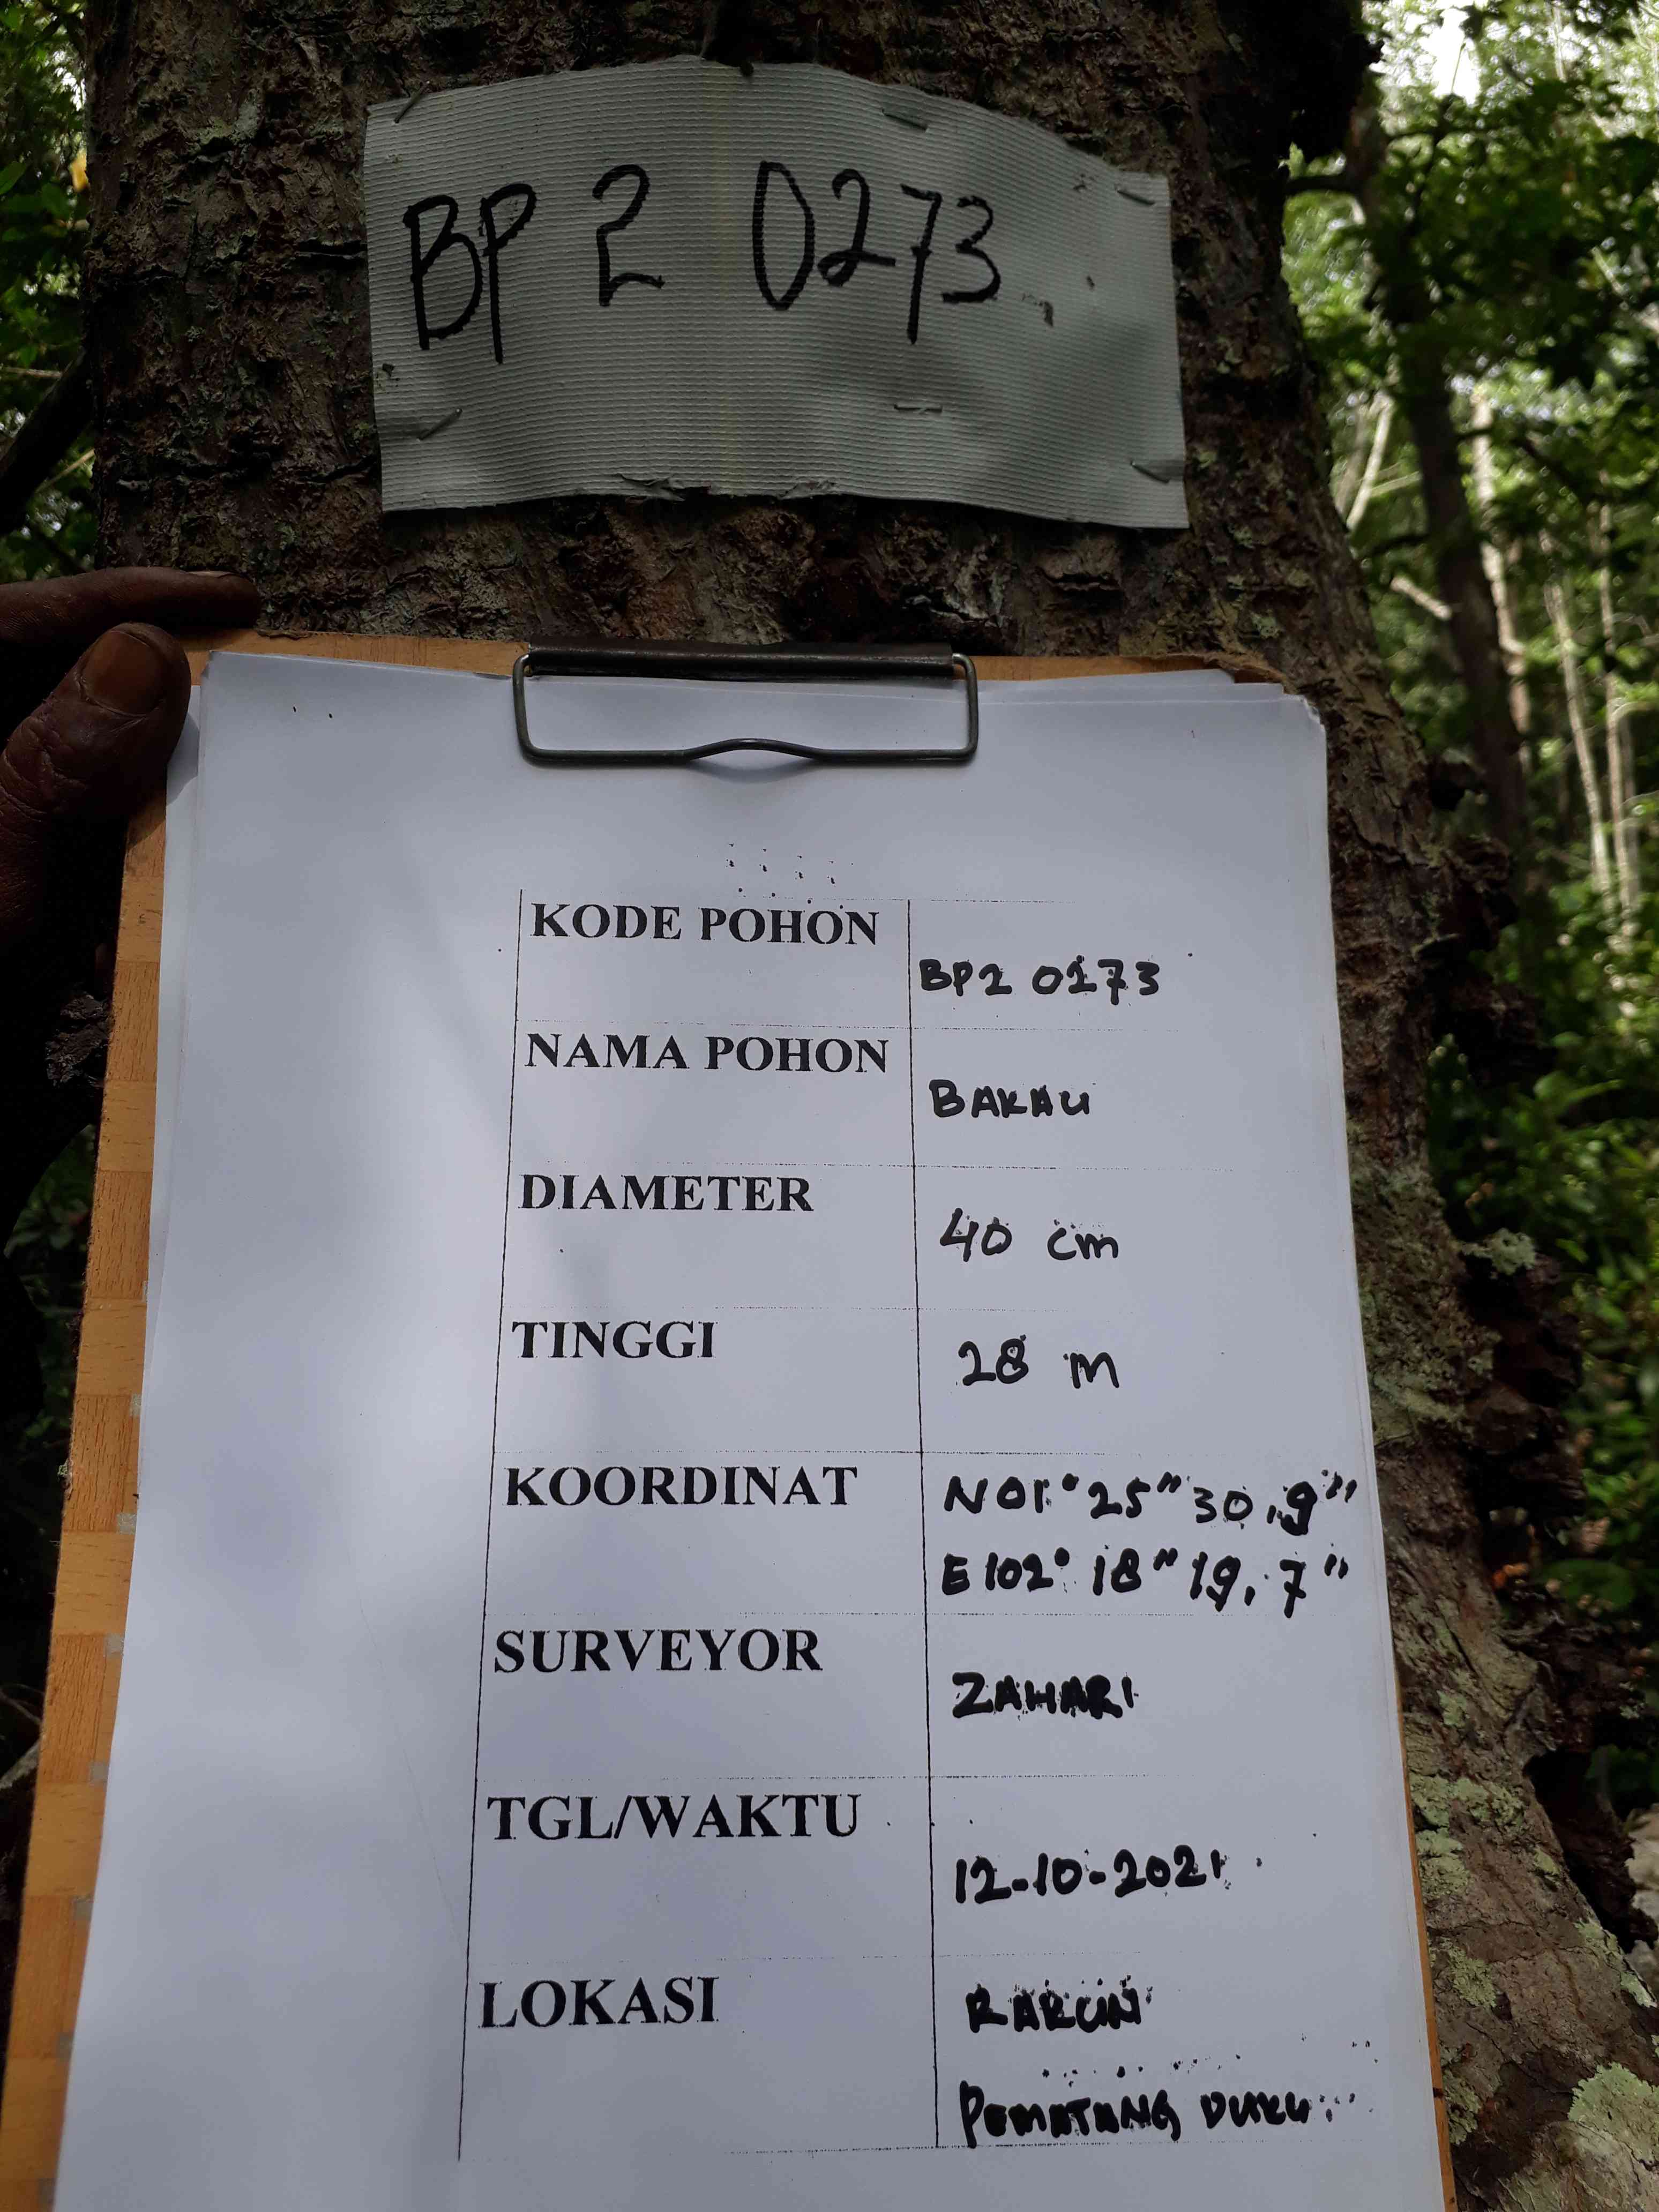 BP 2 0273
KODE POHON
BP2 0273
NAMA POHON
BAKAU
DIAMETER
40 cm
TINGGI
28 m
KOORDINAT
N 01° 25" 30,9"
E 102° 18" 19,7"
SURVEYOR
ZAHARI
TGL/WAKTU
12-10-2021
LOKASI
PEMATANG DUKU